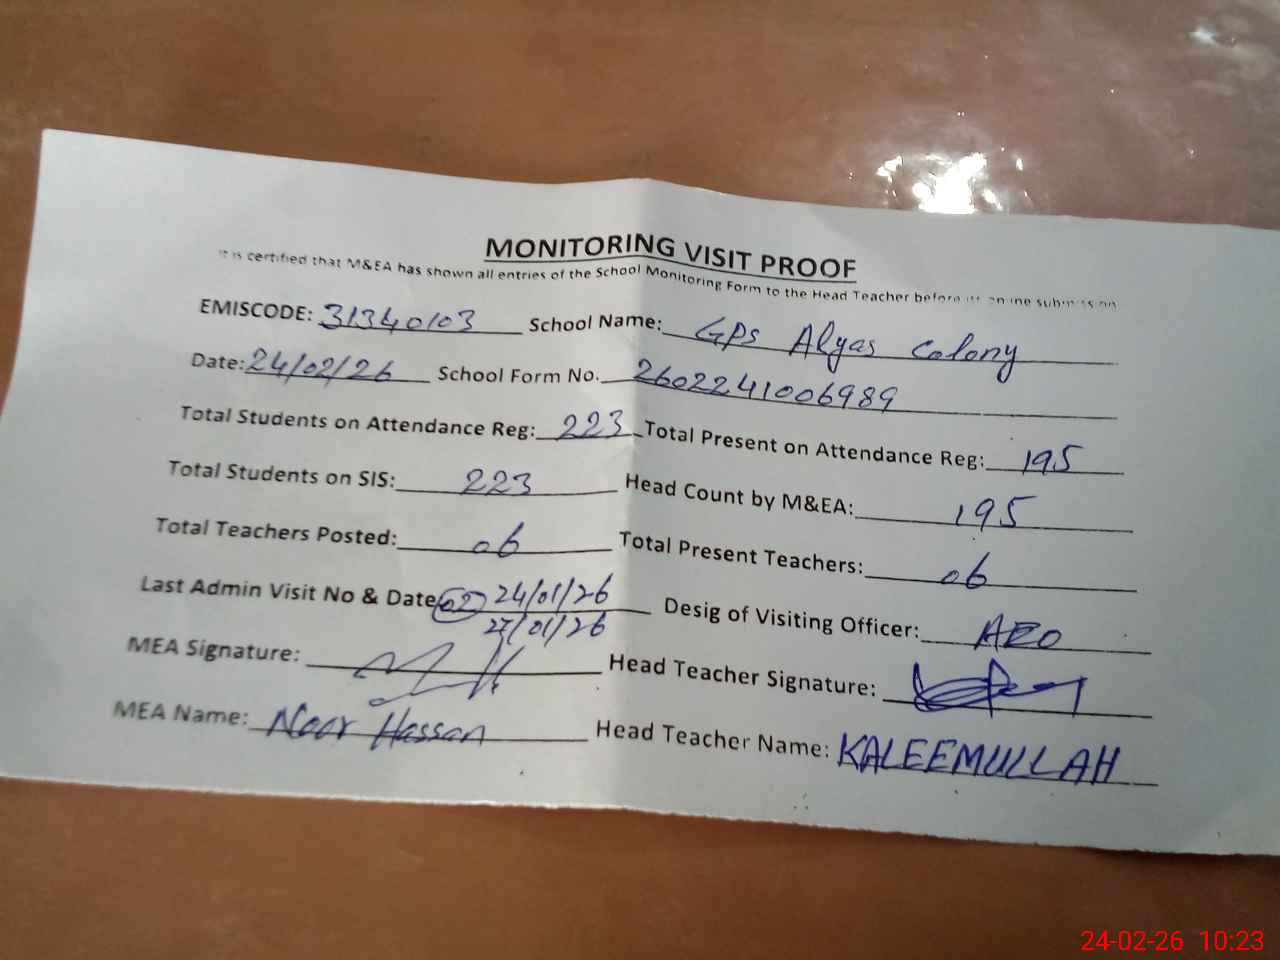 MONITORING VISIT PROOF
It is certified that M&EA has shown all entries of the School Monitoring Form to the Head Teacher before its online submission
EMISCODE: 31340103 School Name: GPS Alyas Colony
Date: 24/02/26 School Form No. 2602241006989
Total Students on Attendance Reg: 223 Total Present on Attendance Reg: 195
Total Students on SIS: 223 Head Count by M&EA: 195
Total Teachers Posted: 06 Total Present Teachers: 06
Last Admin Visit No & Date 02 24/01/26 Desig of Visiting Officer: AEO
27/01/26
MEA Signature: Head Teacher Signature:
MEA Name: Noor Hassan Head Teacher Name: KALEEMULLAH
24-02-26 10:23